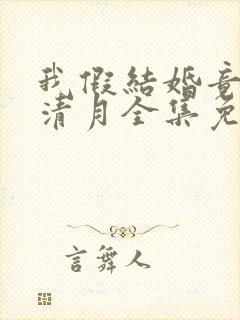 我假結婚竟
清月全集免
言舞人